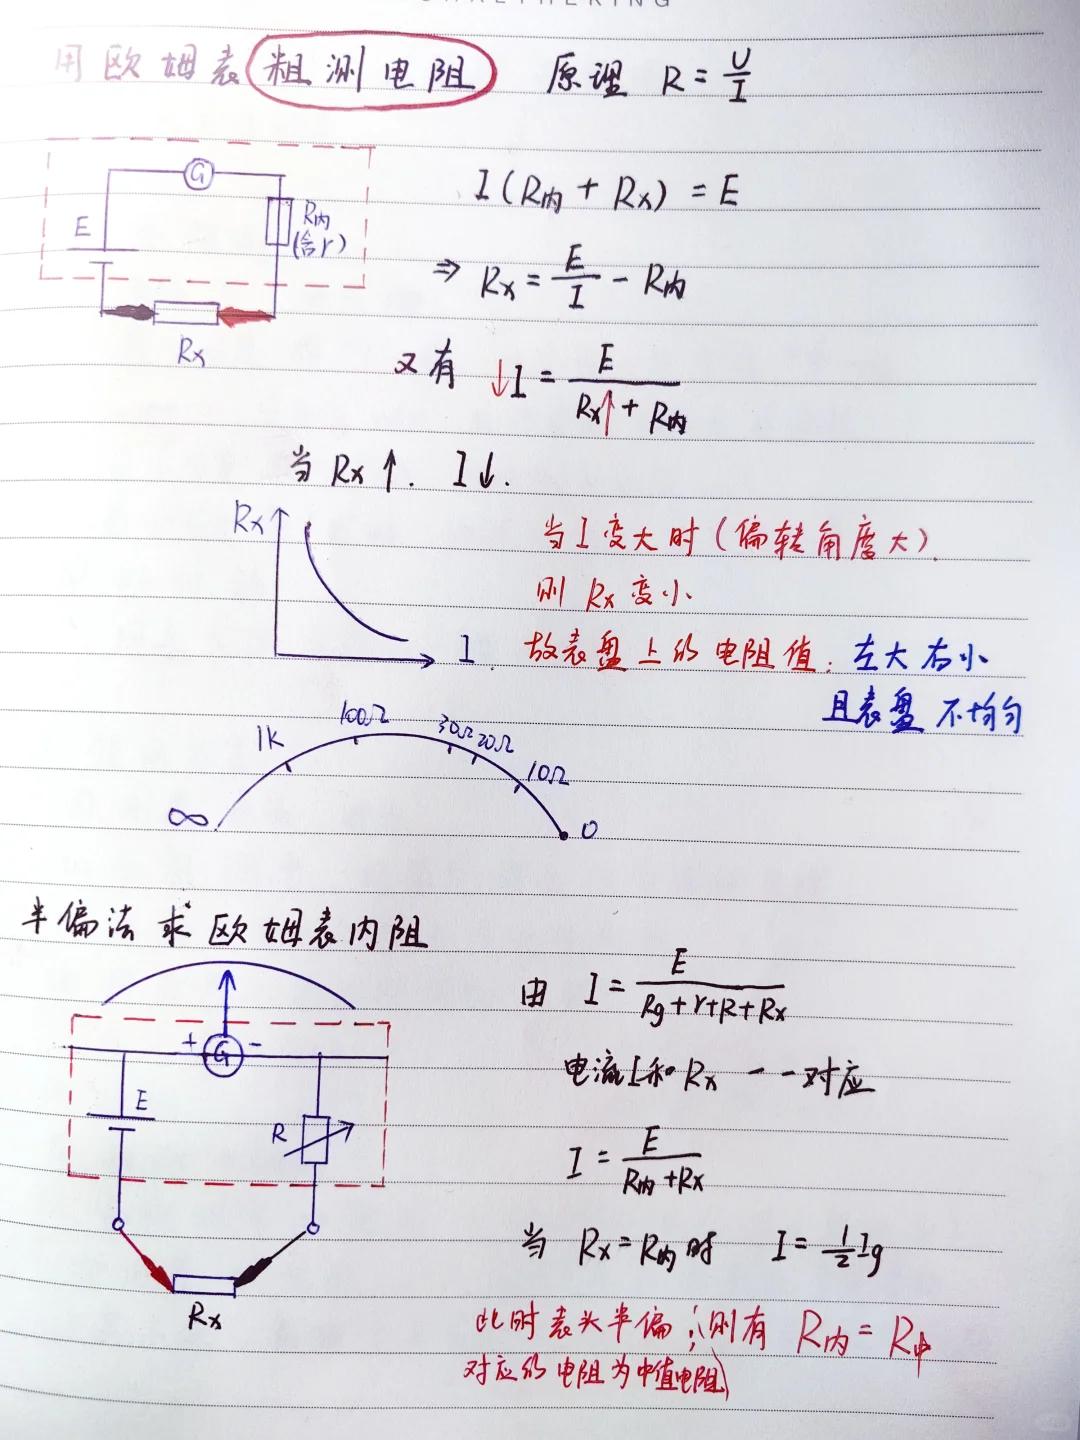 用欧姆表粗测电阻 原理 R = U/I
G
E
R内
(含r)
Rx
I(R内 + Rx) = E
⇒ Rx = E/I - R内
又有 ↓I = E/(Rx↑ + R内)
当 Rx↑. I↓.
Rx
I
当 I 变大时 (偏转角度大).
则 Rx 变小
故表盘上的电阻值: 左大右小
且表盘不均匀
∞ 1K 100Ω 30Ω 20Ω 10Ω 0
半偏法求欧姆表内阻
+ G -
E
R
Rx
由 I = E/(Rg + r + R + Rx)
电流I和Rx 一一对应
I = E/(R内 + Rx)
当 Rx = R内时 I = 1/2 Ig
此时表头半偏; 则有 R内 = R中
(对应的电阻为中值电阻)